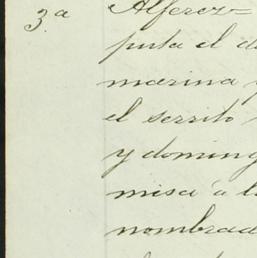 3.ª Alferez=
puta el d
marina y
el serrito
y doming
misa a l
nombrad